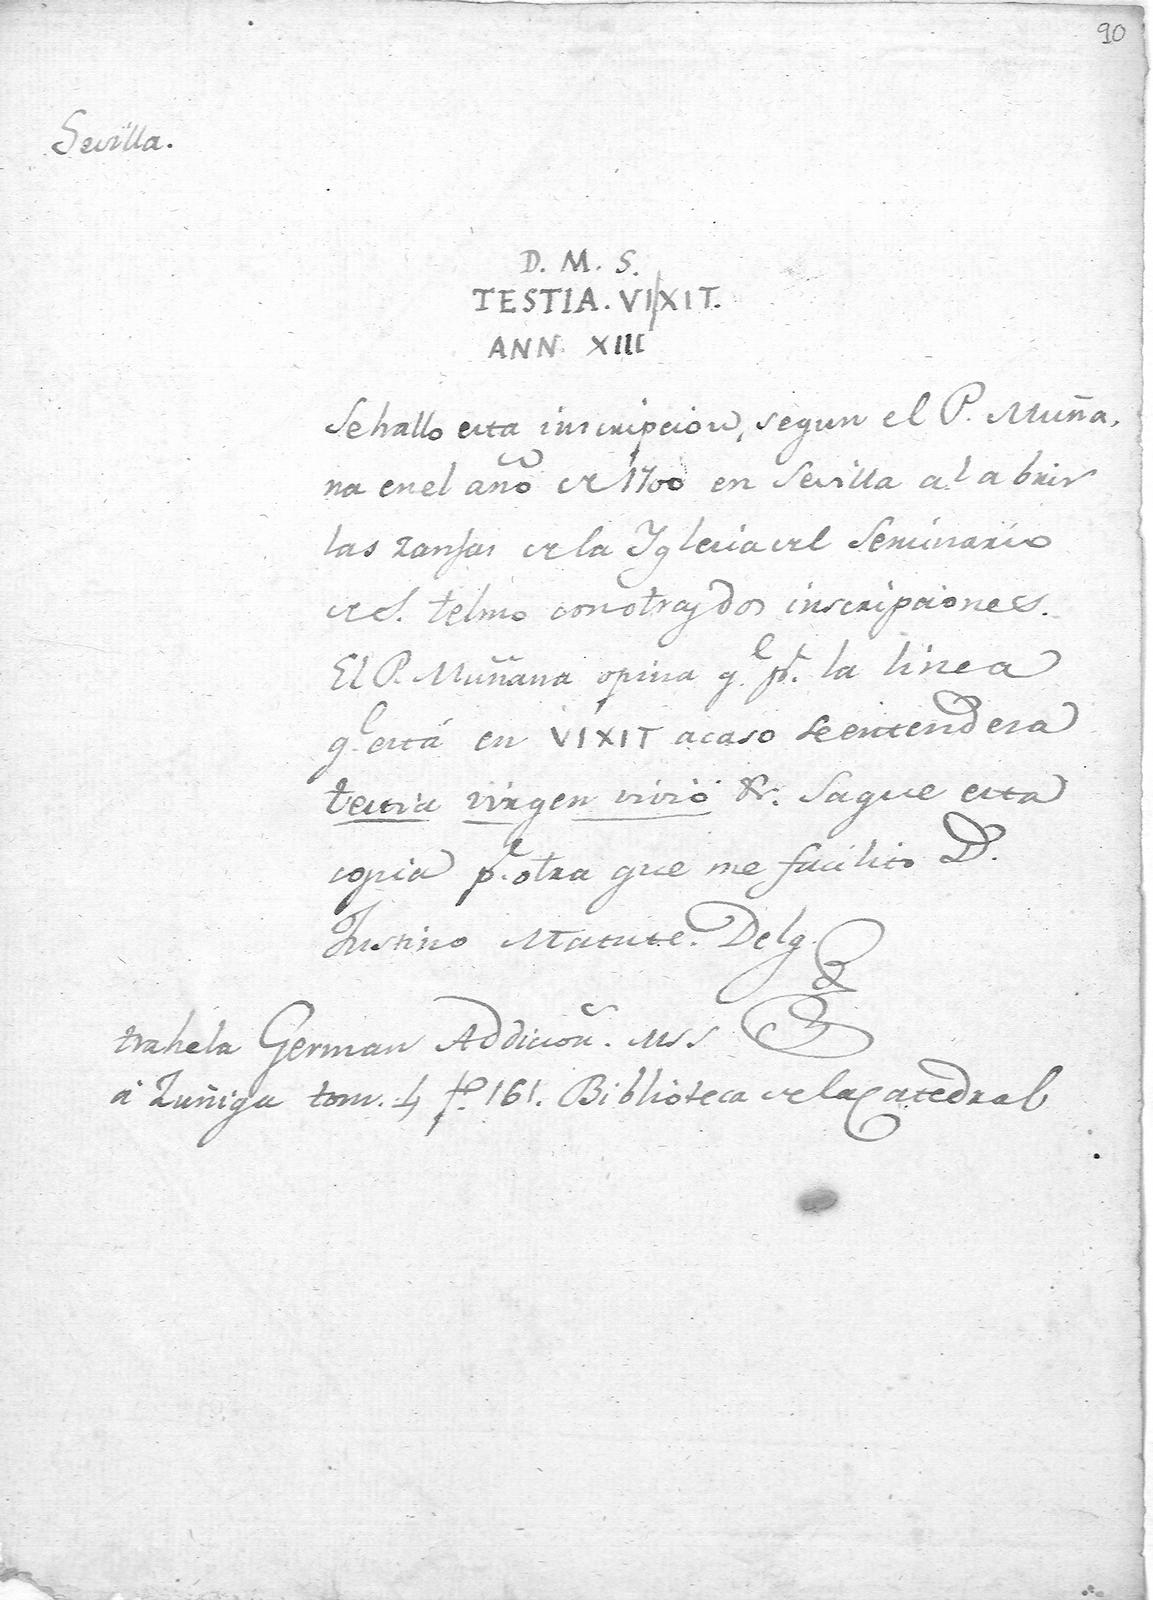 90
Sevilla.
D. M. S.
TESTIA. VI/XIT.
ANN. XIII
Sehallo esta inscripcion, segun el P. Muña,
na en el año de 1700 en Sevilla al abrir
las zanjas de la Yglesia del Seminario
de S. telmo con otras dos inscripciones.
El P. Muñana opina q.e p.r la linea
q.e está en VIXIT acaso se entendera
testia virgen vivio &. Saque esta
copia p.r otra que me facilito D.
Justino Matute. Delg.
trahela German Addicion. MSS
á Zuñiga tom. 4 f.o 161. Biblioteca de la Catedral